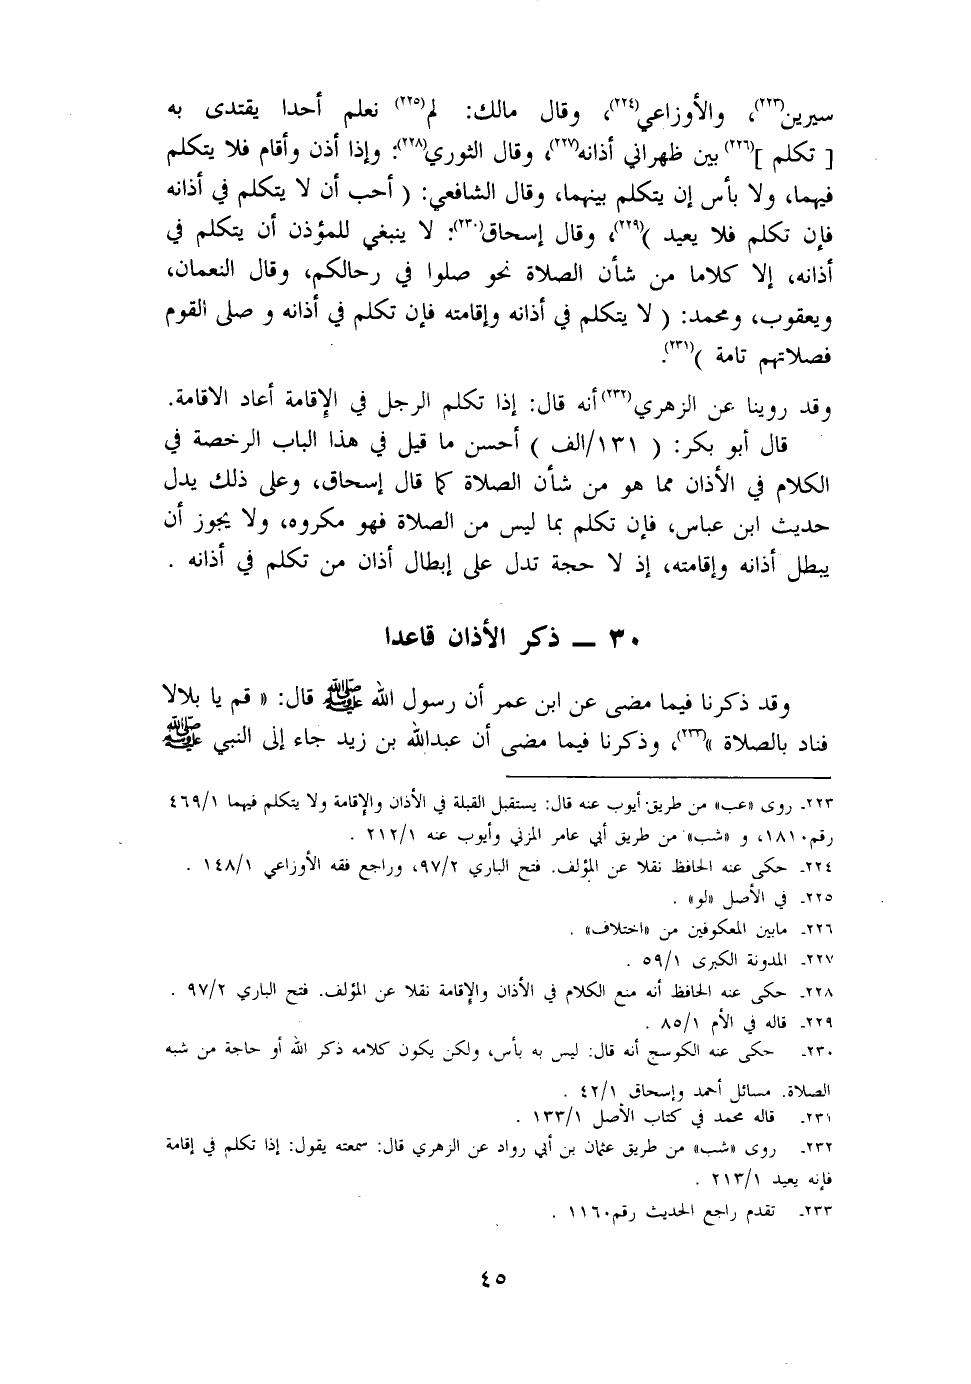 سيرين(٢٢٣)، والأوزاعي(٢٢٤)، وقال مالك: لم(٢٢٥) نعلم أحدا يقتدى به
[ تكلم ](٢٢٦) بين ظهراني أذانه(٢٢٧)، وقال الثوري(٢٢٨): وإذا أذن وأقام فلا يتكلم
فيهما، ولا بأس إن يتكلم بينهما، وقال الشافعي: ( أحب أن لا يتكلم في أذانه
فإن تكلم فلا يعيد )(٢٢٩)، وقال إسحاق(٢٣٠): لا ينبغي للمؤذن أن يتكلم في
أذانه، إلا كلاما من شأن الصلاة نحو صلوا في رحالكم، وقال النعمان،
ويعقوب، ومحمد: ( لا يتكلم في أذانه وإقامته فإن تكلم في أذانه و صلى القوم
فصلاتهم تامة )(٢٣١).
وقد روينا عن الزهري(٢٣٢) أنه قال: إذا تكلم الرجل في الإقامة أعاد الاقامة.
قال أبو بكر: ( ١٣١/الف ) أحسن ما قيل في هذا الباب الرخصة في
الكلام في الأذان مما هو من شأن الصلاة كما قال إسحاق، وعلى ذلك يدل
حديث ابن عباس، فإن تكلم بما ليس من الصلاة فهو مكروه، ولا يجوز أن
يبطل أذانه وإقامته، إذ لا حجة تدل على إبطال أذان من تكلم في أذانه .
٣٠ ــ ذكر الأذان قاعدا
وقد ذكرنا فيما مضى عن ابن عمر أن رسول الله ﷺ قال: « قم يا بلالا
فناد بالصلاة »(٢٣٣)، وذكرنا فيما مضى أن عبدالله بن زيد جاء إلى النبي ﷺ
٢٢٣ـ روى «عب» من طريق أيوب عنه قال: يستقبل القبلة في الأذان والإقامة ولا يتكلم فيهما ٤٦٩/١
رقم١٨١٠، و «شب» من طريق أبي عامر المزني وأيوب عنه ٢١٢/١ .
٢٢٤ـ حكى عنه الحافظ نقلا عن المؤلف. فتح الباري ٩٧/٢، وراجع فقه الأوزاعي ١٤٨/١ .
٢٢٥ـ في الأصل «لو» .
٢٢٦ـ مابين المعكوفين من «اختلاف» .
٢٢٧ـ المدونة الكبرى ٥٩/١ .
٢٢٨ـ حكى عنه الحافظ أنه منع الكلام في الأذان والإقامة نقلا عن المؤلف. فتح الباري ٩٧/٢ .
٢٢٩ـ قاله في الأم ٨٥/١ .
٢٣٠ـ حكى عنه الكوسج أنه قال: ليس به بأس، ولكن يكون كلامه ذكر الله أو حاجة من شبه
الصلاة. مسائل أحمد وإسحاق ٤٢/١ .
٢٣١ـ قاله محمد في كتاب الأصل ١٣٣/١ .
٢٣٢ـ روى «شب» من طريق عثمان بن أبي رواد عن الزهري قال: سمعته يقول: إذا تكلم في إقامة
فإنه يعيد ٢١٣/١ .
٢٣٣ـ تقدم راجع الحديث رقم١١٦٠ .
٤٥